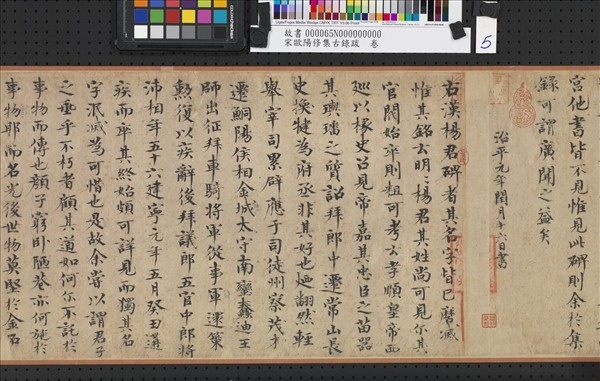 故書 000065N000000000
宋歐陽修集古錄跋 卷
5
宮他書皆不見惟見此碑則余於集
錄可謂廣聞之益矣
治平元年閏月十六日書
右漢楊君碑者其名字皆已磨滅
惟其銘云明楊君其姓尚可見尔其
官閥始卒則粗可考云孝順皇帝西
巡以掾史召見帝嘉其忠臣之苗器
其璵璠之質詔拜郎中遷常山長
史換犍為府丞非其好也迺翻然輕
舉宰司累辟應于司徒州察茂才
遷鮦陽侯相金城太守南蠻蠢迪王
師出征拜車騎將軍從事軍還策
勳復以疾辭後拜議郎五官中郎將
沛相年五十六建寧元年五月癸丑遘
疾而卒其終始頗可詳見而獨其名
字泯滅為可惜也是故余嘗以謂君子
之垂乎不朽者顧其道如何尔不託於
事物而傳也顏子窮臥陋巷亦何施於
事物耶而名光後世物莫堅於金石